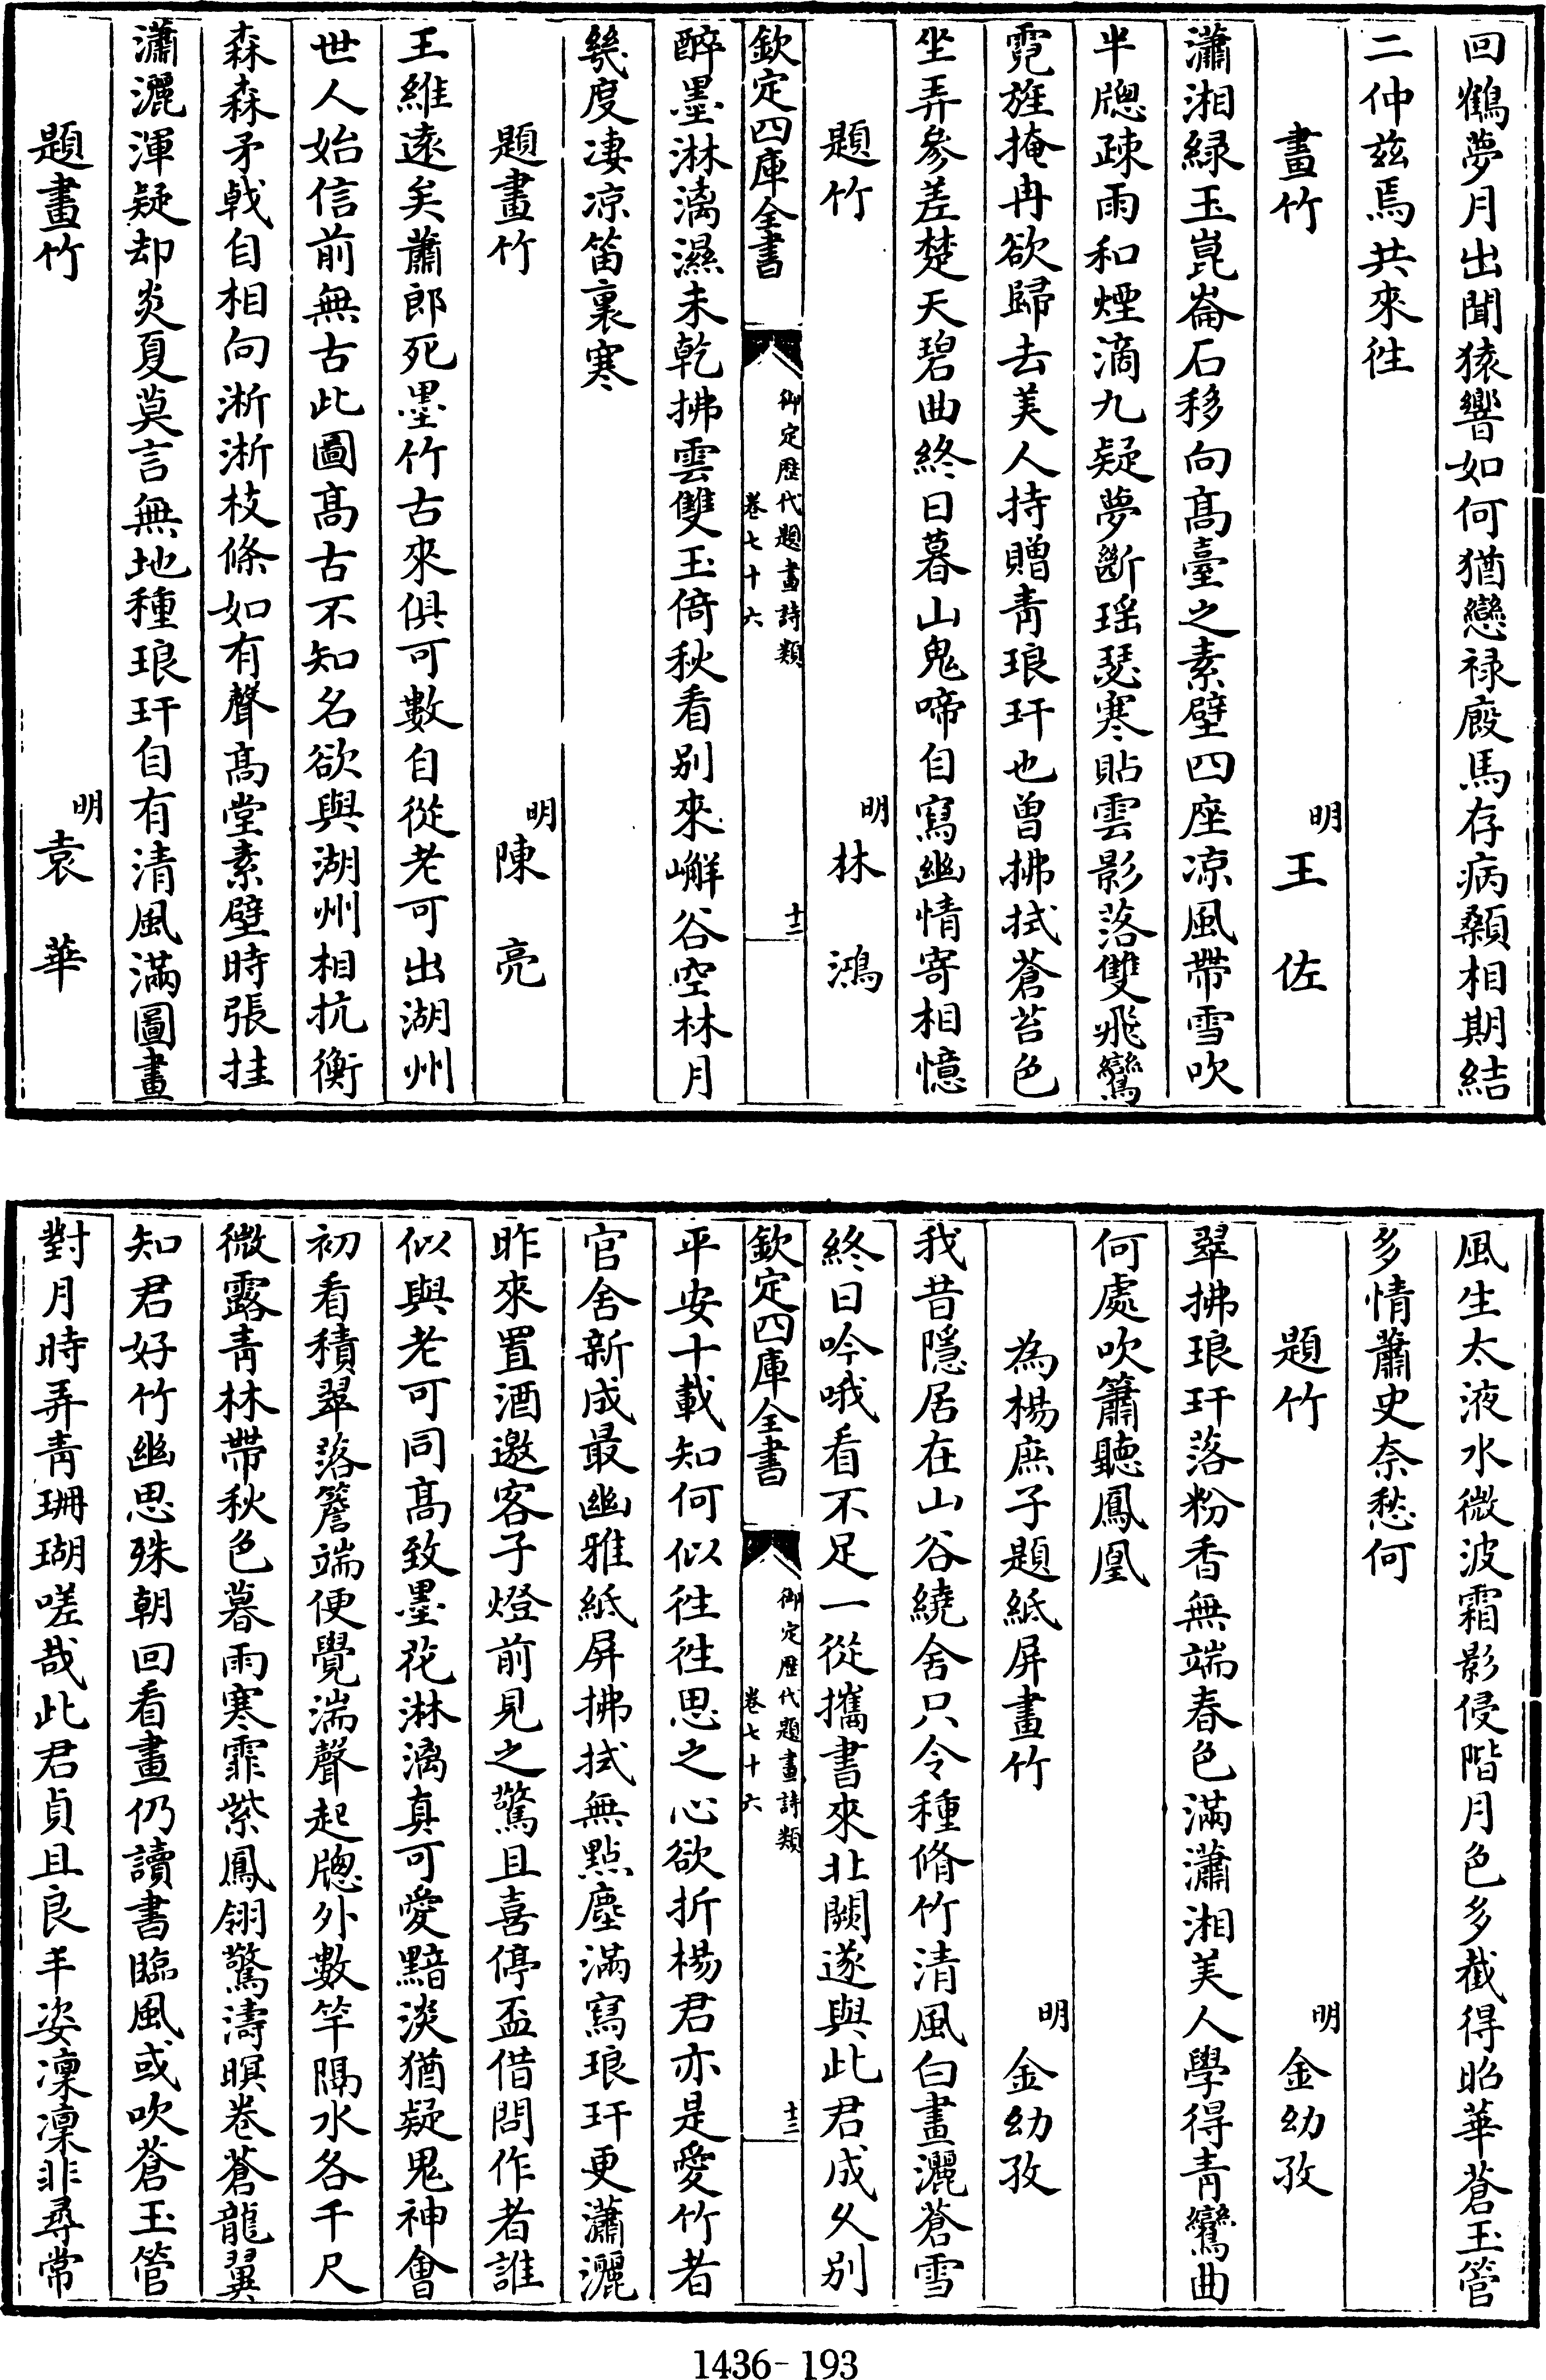 回鶴夢月出聞猿響如何猶戀祿廄馬存病顙相期結
二仲兹焉共來往
畫竹
明王佐
瀟湘緑玉崑崙石移向髙臺之素壁四座凉風帶雪吹
半牕疎雨和煙滴九疑夢斷瑶瑟寒貼雲影落雙飛鸞
霓旌掩冉欲歸去美人持贈青琅玕也曽拂拭蒼苔色
坐弄參差楚天碧曲終日暮山鬼啼自寫幽情寄相憶
題竹
明林鴻
欽定四庫全書
御定歴代題畫詩類
卷七十六
十二
醉墨淋漓濕未乾拂雲雙玉倚秋看别來嶰谷空林月
幾度凄凉笛裏寒
題畫竹
明陳亮
王維逺矣蕭郎死墨竹古來俱可數自從老可出湖州
世人始信前無古此圖髙古不知名欲與湖州相抗衡
森森矛戟自相向淅淅枝條如有聲髙堂素壁時張挂
瀟灑渾疑却炎夏莫言無地種琅玕自有清風滿圖畫
題畫竹
明袁華
風生太液水微波霜影侵階月色多截得昭華蒼玉管
多情蕭史奈愁何
題竹
明金幼孜
翠拂琅玕落粉香無端春色滿瀟湘美人學得青鸞曲
何處吹簫聽鳳凰
為楊庶子題紙屏畫竹
明金幼孜
我昔隱居在山谷繞舍只令種脩竹清風白晝灑蒼雪
終日吟哦看不足一從攜書來北闕遂與此君成乆别
欽定四庫全書
御定歴代題畫詩類
卷七十六
十三
平安十載知何似往往思之心欲折楊君亦是愛竹者
官舍新成最幽雅紙屏拂拭無點塵滿寫琅玕更瀟灑
昨來置酒邀客子燈前見之驚且喜停盃借問作者誰
似與老可同髙致墨花淋漓真可愛黯淡猶疑鬼神會
初看積翠落簷端便覺湍聲起牕外數竿隔水各千尺
微露青林帶秋色暮雨寒霏紫鳳翎驚濤暝卷蒼龍翼
知君好竹幽思殊朝回看畫仍讀書臨風或吹蒼玉管
對月時弄青珊瑚嗟哉此君貞且良丰姿凜凜非尋常
1436-193